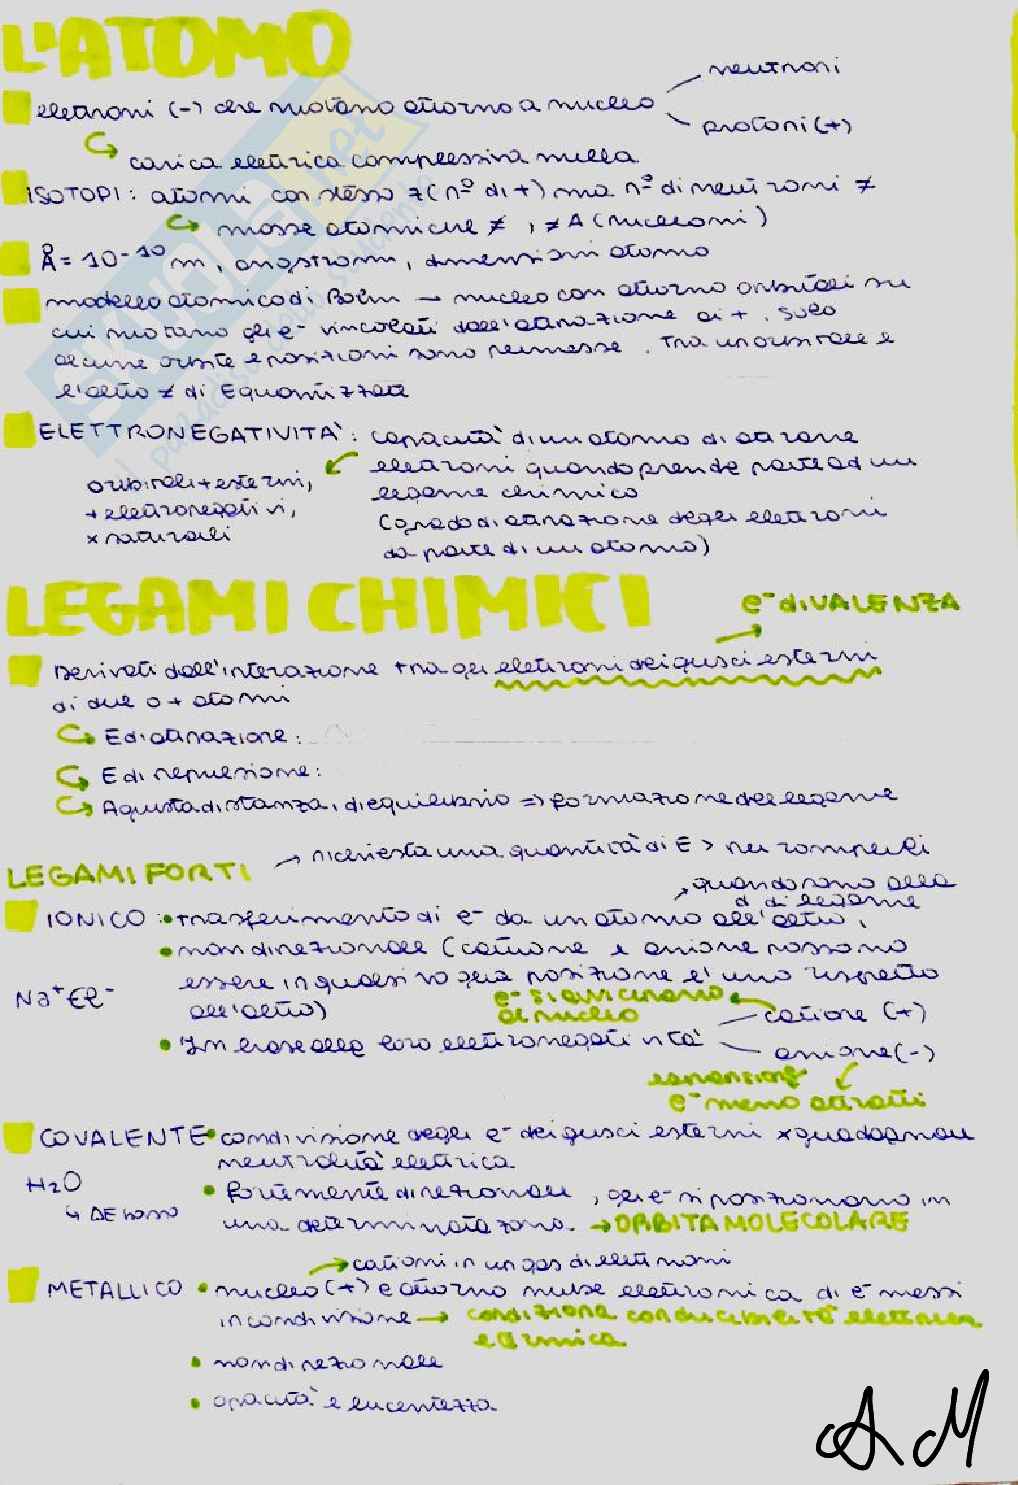 L'ATOMO
neutroni
elettroni (-) che ruotano attorno a nucleo
protoni (+)
carica elettrica complessiva nulla
ISOTOPI: atomi con stesso Z (n° di +) ma n° di neutroni ≠
masse atomiche ≠, ≠ A (nucleoni)
Å = 10⁻¹⁰ m, angstrom, dimensioni atomo
modello atomico di Bohr → nucleo con attorno orbitali su
cui ruotano gli e⁻ vincolati dall'attrazione ai +. Solo
alcune orbite e posizioni sono permesse. Tra un orbitale e
l'altro ≠ di E quantizzata
ELETTRONEGATIVITÀ: capacità di un atomo di attrarre
elettroni quando prende parte ad un
legame chimico
(grado di attrazione degli elettroni
da parte di un atomo)
orbitali + esterni,
+ elettronegativi,
x naturali
SKUOLA.net
il paradiso dello studente
LEGAMI CHIMICI
e⁻ di VALENZA
Derivati dall'interazione tra gli elettroni dei gusci esterni
di due o + atomi
E di attrazione:
E di repulsione:
A giusta distanza, di equilibrio => formazione del legame
LEGAMI FORTI → richiesta una quantità di E > per romperli
quando sono alla
d di legame
IONICO: • trasferimento di e⁻ da un atomo all'altro,
• non direzionale (catione e anione possono
essere in qualsivoglia posizione l'uno rispetto
all'altro)
Na⁺Cl⁻
e⁻ si avvicinano
al nucleo
catione (+)
• In base alla loro elettronegatività
anione (-)
espansione
e⁻ meno attratti
COVALENTE • condivisione degli e⁻ dei gusci esterni x guadagnare
neutralità elettrica
H₂O
• fortemente direzionale, gli e⁻ si posizionano in
una determinata zona. → ORBITA MOLECOLARE
cationi in un gas di elettroni
METALLICO • nucleo (+) e attorno nube elettronica di e⁻ messi
in condivisione → condizione conducibilità elettrica
e termica
• non direzionale
• opacità e lucentezza
AM